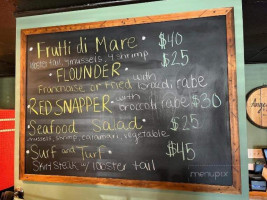 Frutti di Mare • $40
lobster tail, 4 mussels, 4 shrimp
• FLOUNDER • $25
Franchaise or Fried with
broccoli rabe
RED SNAPPER • with broccoli rabe $30
Seafood Salad • $25
mussels, shrimp, calamari, vegetable
• Surf and Turf • $45
Skirt Steak w/ lobster tail
menupix